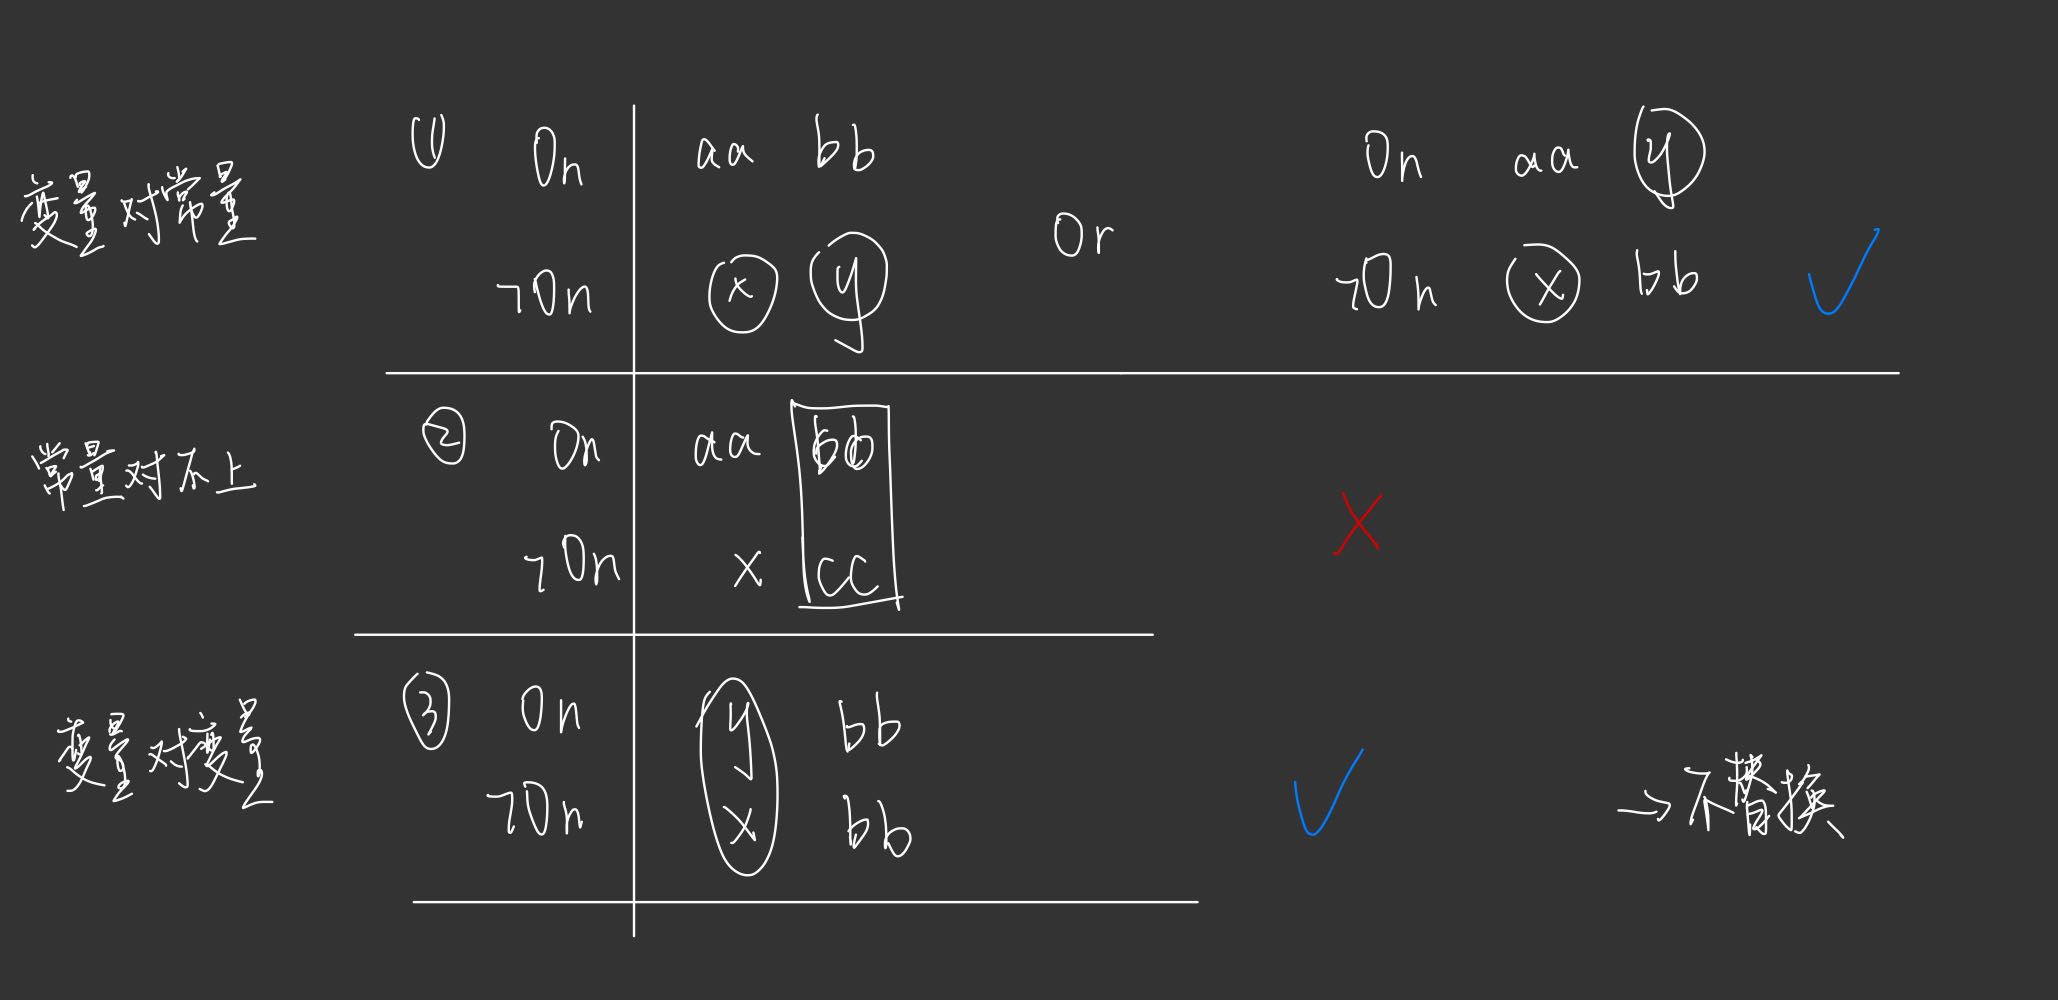 变量对常量 ① On aa bb Or On aa y
¬On x y ¬On x bb
常量对不上 ② On aa bb
¬On x cc
变量对变量 ③ On y bb
¬On x bb →不替换